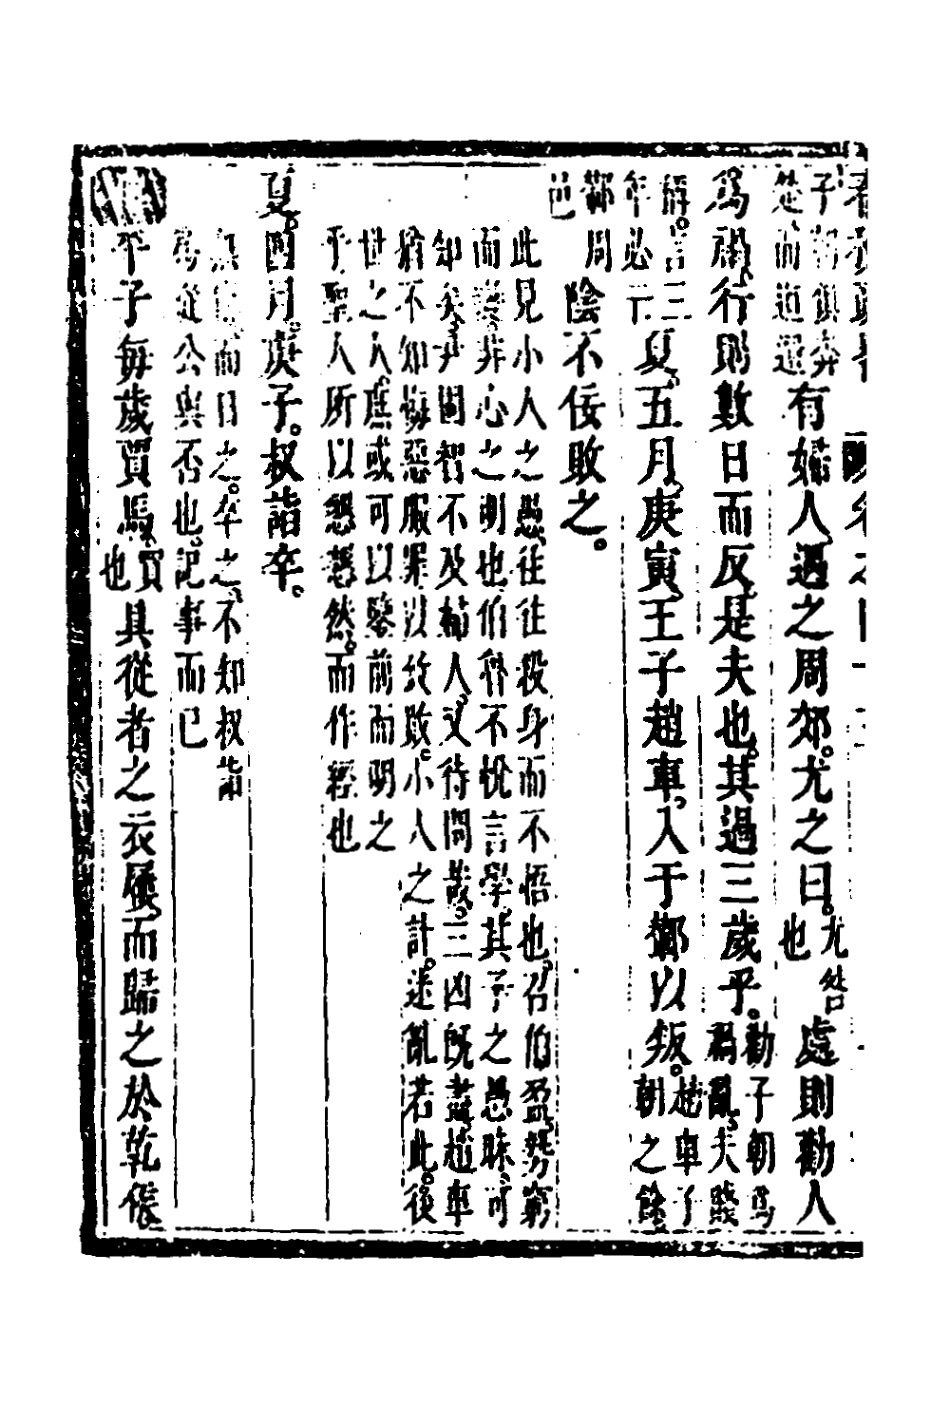 子朝鎮奔
楚而道還有婦人遇之周郊。尤之曰。尤咎也處則勸人
爲禍、行則數日而反、是夫也。其過三歲乎。勸子朝爲
禍亂、夫踐
言三
年必亡夏、五月、庚寅、王子趙車、入于鄻以叛。趙車子
朝之餘
鄻周
邑陰不佞敗之。
此見小人之愚、往往殺身而不悟也、召伯盈窮
而變、非心之明也伯矜不悅言學、其子之愚昧、可
知矣、尹固智不及婦人、又待問哉。三凶旣盡、趙車
猶不知悔惡服罪、以敗。小人之計。迷亂若此。後
世之人、庶或可以鑒前而明之
乎聖人所以懇懇然。而作經也
夏。四月。庚子。叔詣卒。
而日之。卒之、不知叔詣
從公與否也。記事而已
平子每歲買馬、買也具從者之衣屨、而歸之於乾侯